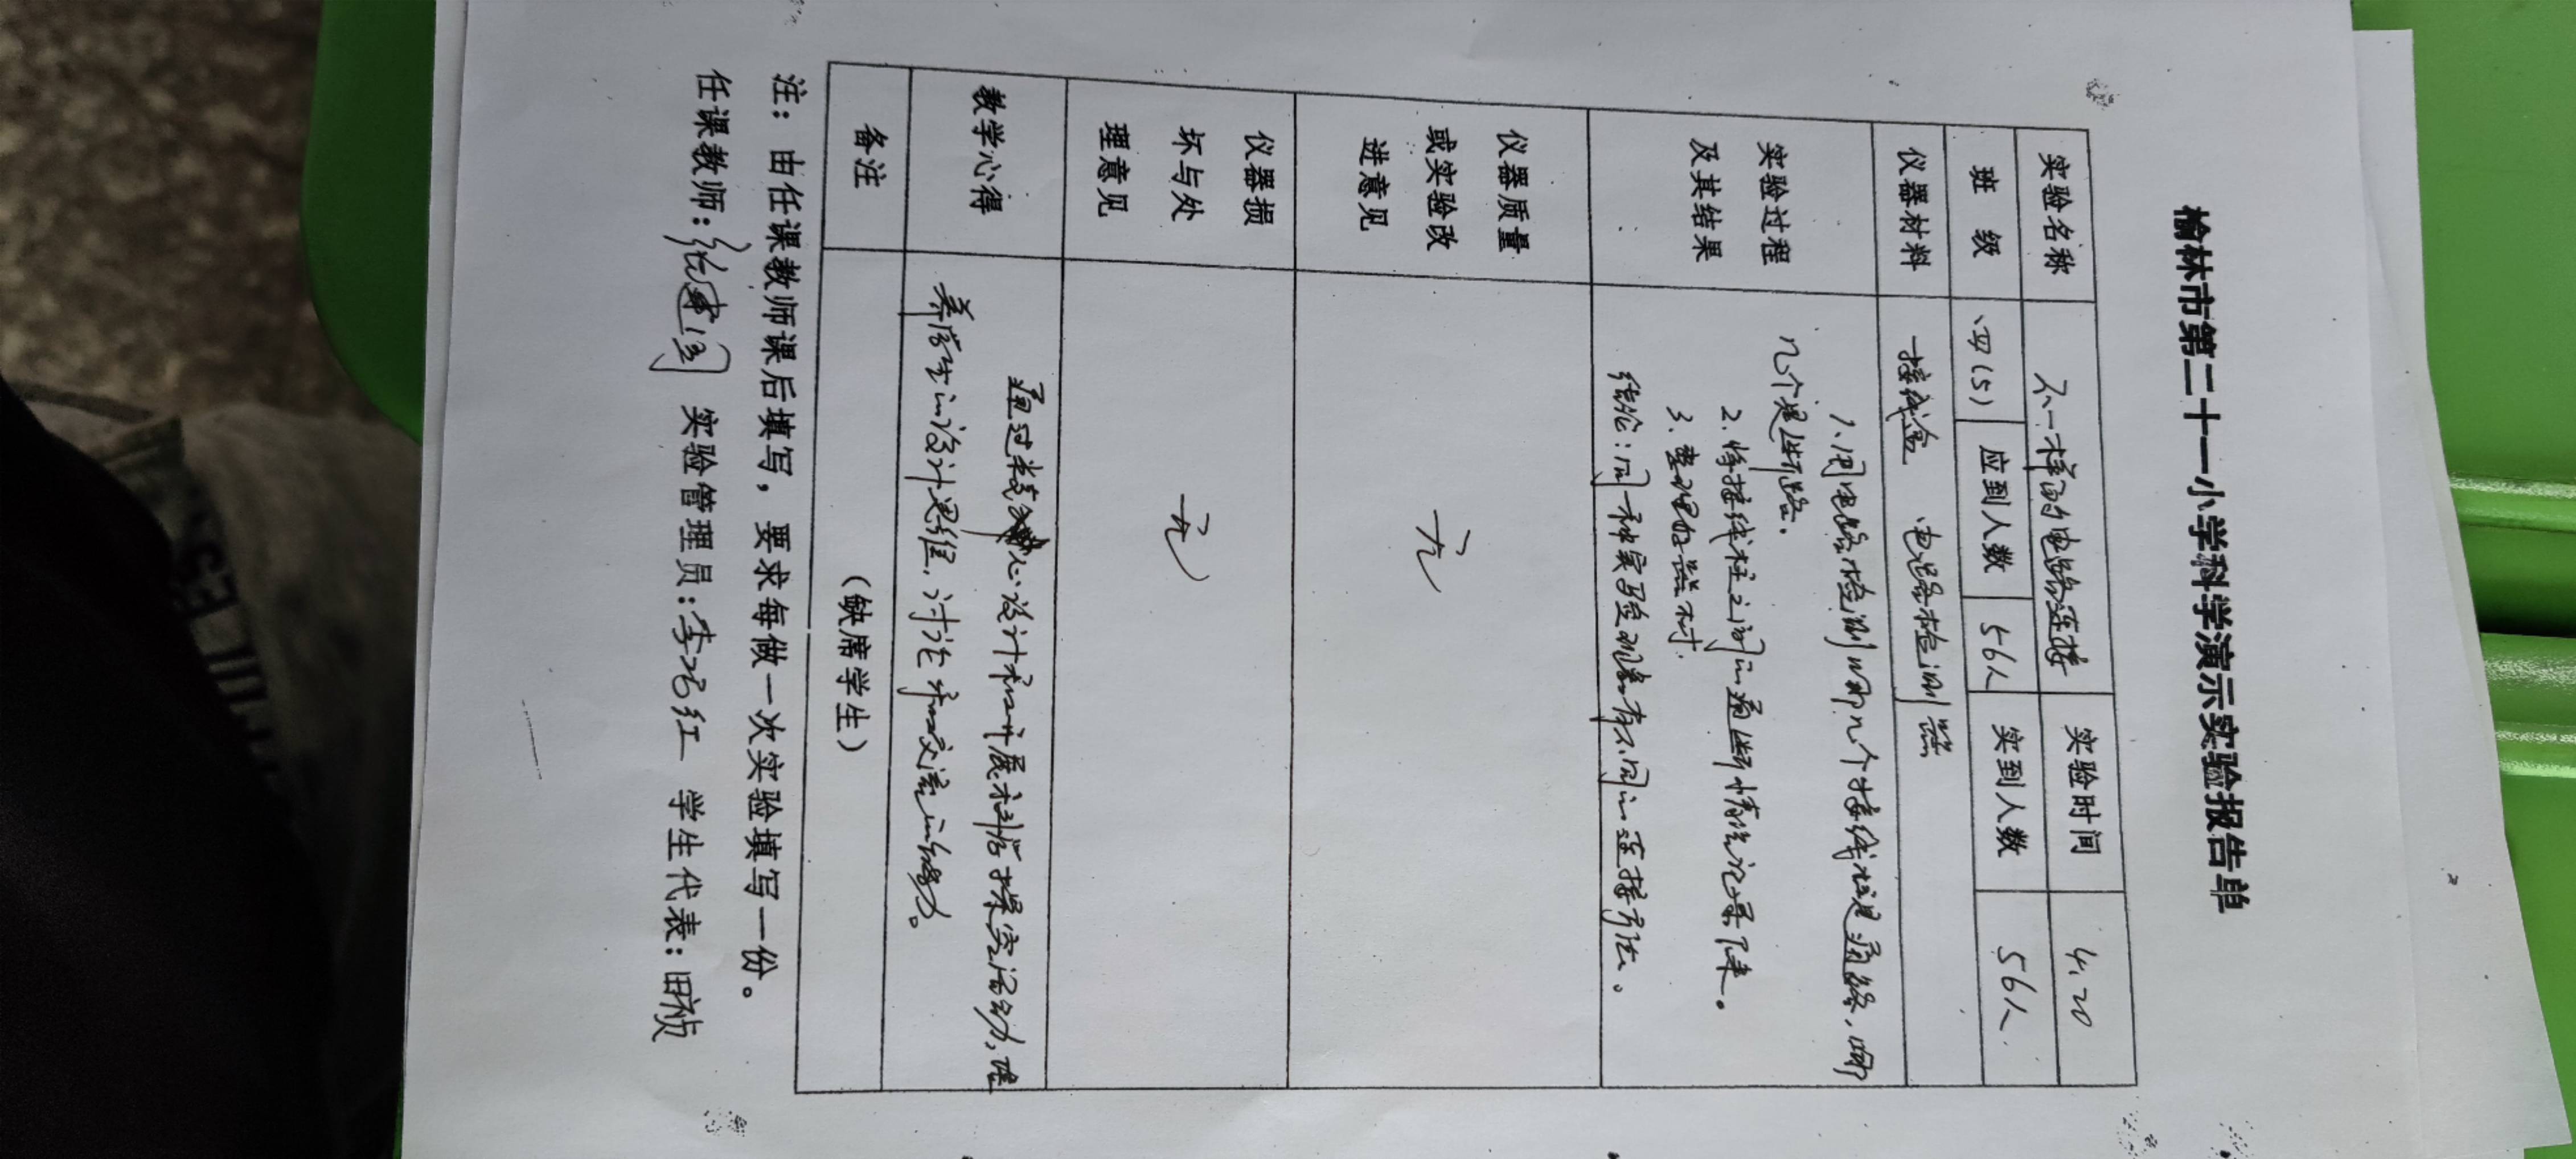 榆林市第二十一小学科学演示实验报告单
实验名称 不一样的电路连接 实验时间 4.20
班 级 四(5) 应到人数 56人 实到人数 56人
仪器材料 接线盒、电路检测器
实验过程
及其结果
1.用电路检测哪几个接线柱是通路,哪
几个是断路.
2.将接线柱之间的通断情况记录下来.
3.整理好器材.
结论:同一种实验现象有不同的连接方法。
仪器质量
或实验改
进意见
无
仪器损
坏与处
理意见
无
教学心得
通过 心设计和开展科学探究活动,
养学生的设计思维,讨论和交流的能力。
备注 (缺席学生)
注:由任课教师课后填写,要求每做一次实验填写一份。
任课教师:张建 实验管理员:李 红 学生代表:田祯